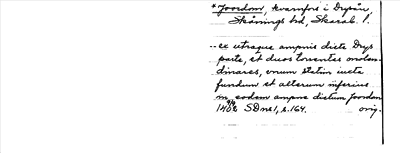 * Joordom, kvarnfors i Drysån,
Skånings hd, Skarab. l.
.. ex utraque ampnis dicte Drys
parte, et duos torrentes molen-
dinares, vnum statim iuxta
fundum et alterum inferius
in eodem ampne dictum Joordom
1402 SDns 1, s. 164. orig.